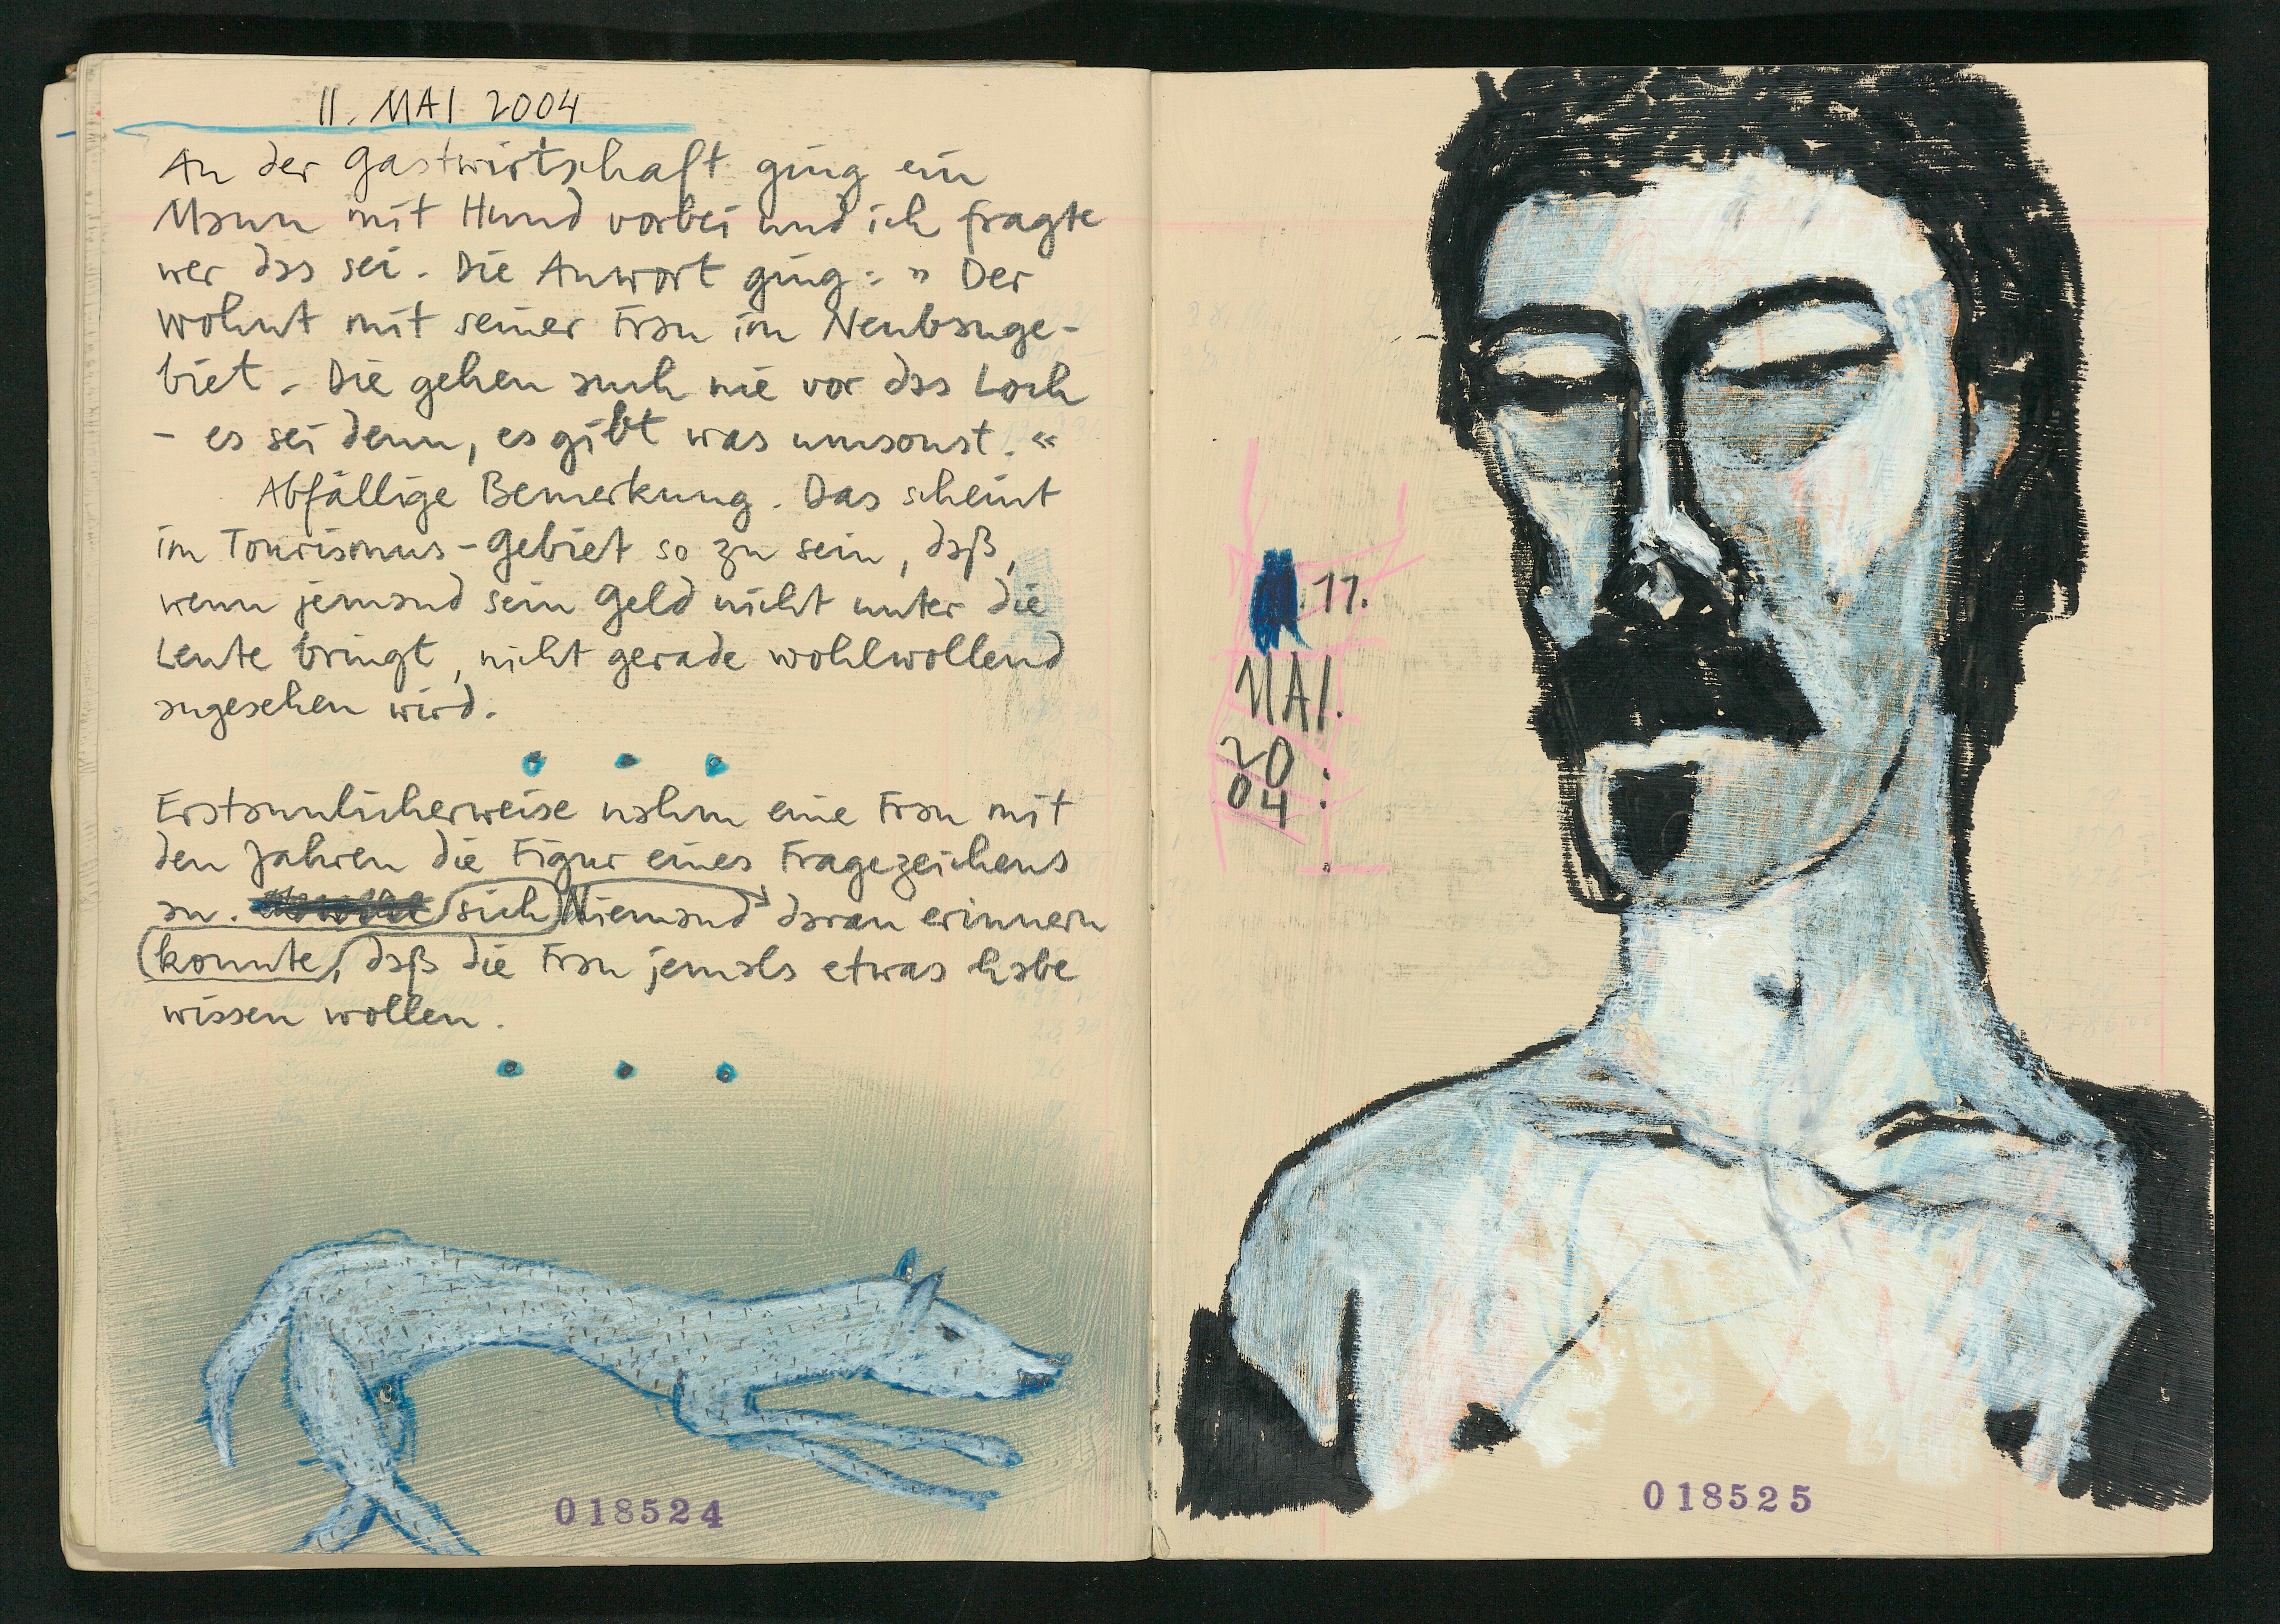 11. MAI 2004
An der Gastwirtschaft ging ein
Mann mit Hund vorbei und ich fragte
wer das sei. Die Anwort ging: » Der
wohnt mit seiner Frau im Neubauge-
biet. Die gehen auch nie vor das Loch
- es sei denn, es gibt was umsonst. «
Abfällige Bemerkung. Das scheint
im Tourismus-Gebiet so zu sein, daß,
wenn jemand sein Geld nicht unter die
Leute bringt, nicht gerade wohlwollend
angesehen wird.
Erstaunlicherweise nahm eine Frau mit
den Jahren die Figur eines Fragezeichens
an. sich Niemand daran erinnern
konnte, daß die Frau jemals etwas habe
wissen wollen.
018524
.11.
MAI.
20.
04.
018525